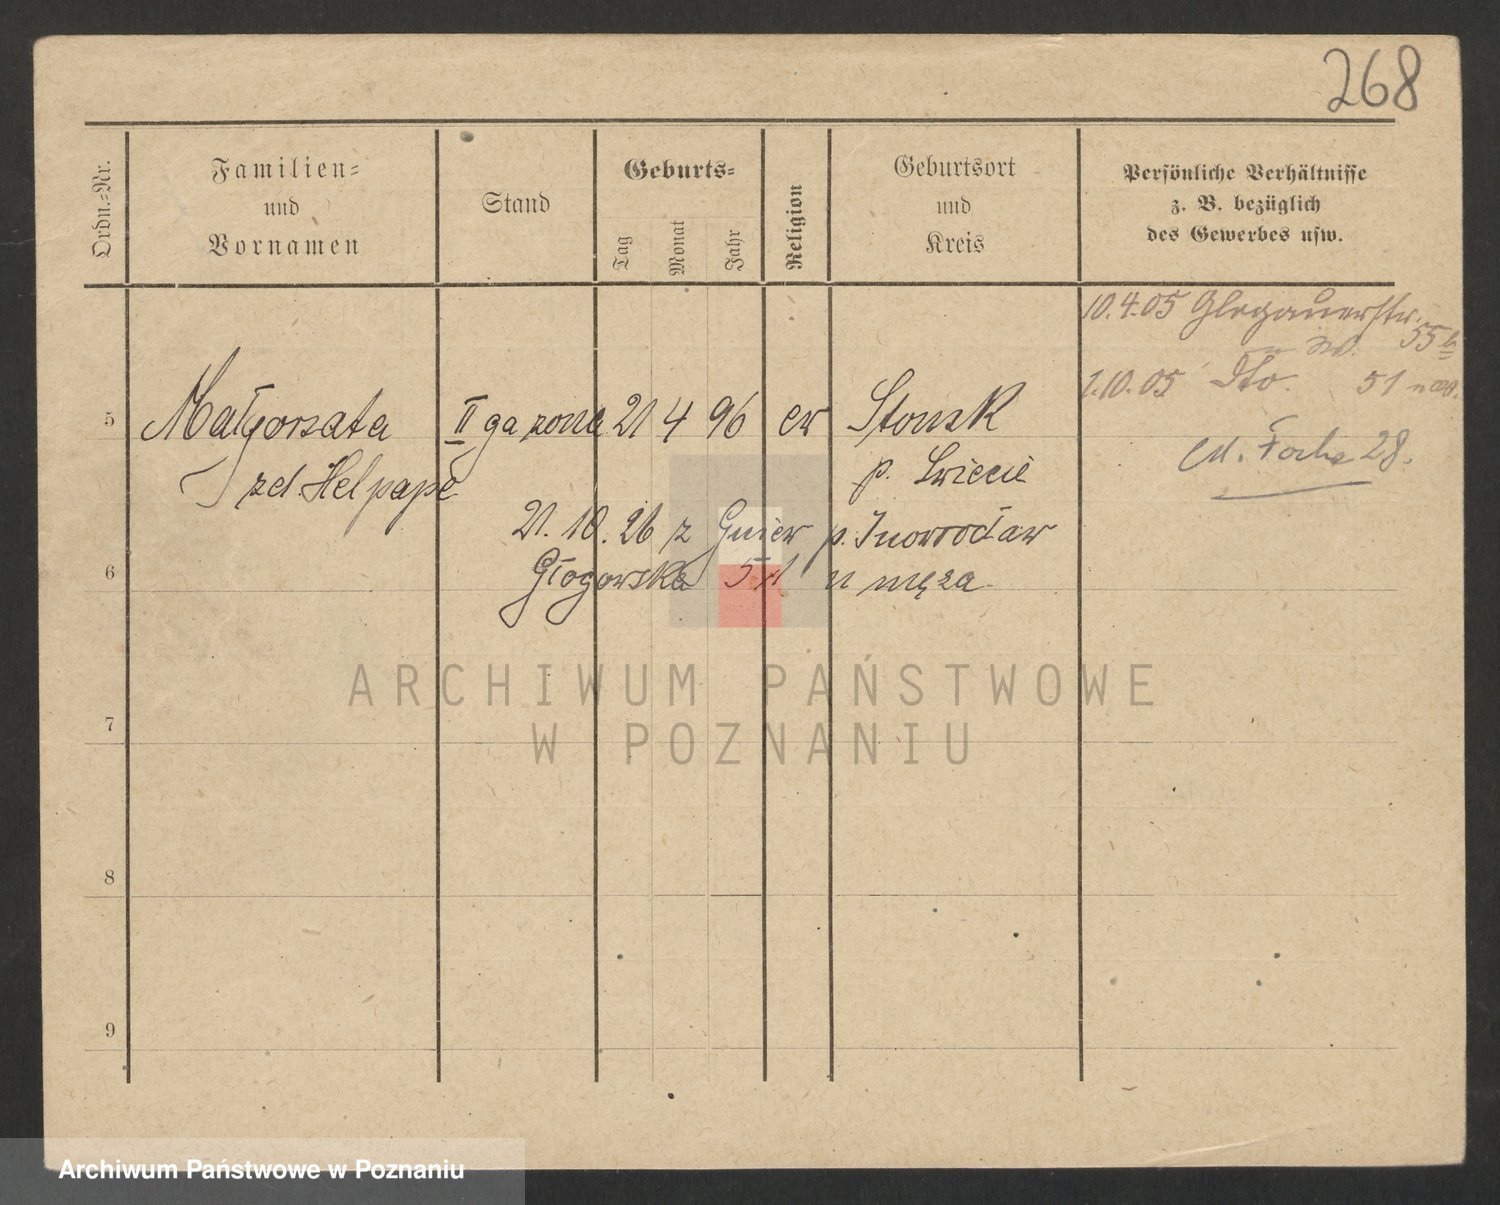 268
Ordn.-Nr.
Familien-
und
Vornamen
Stand
Geburts-
Tag
Monat
Jahr
Religion
Geburtsort
und
Kreis
Persönliche Verhältnisse
z. B. bezüglich
des Gewerbes usw.
10.4.05 Glogauerstr.
55
1.10.05 dto. 51
5 Małgorzata II ga żona 21 4 96 ew Stonsk
zd. Helpape p. Świecie
Focha 28.
21. 10. 26 z Gniew p. Inowrocław
6 Głogowska 51 u męża
7
8
9
ARCHIWUM PAŃSTWOWE
W POZNANIU
Archiwum Państwowe w Poznaniu